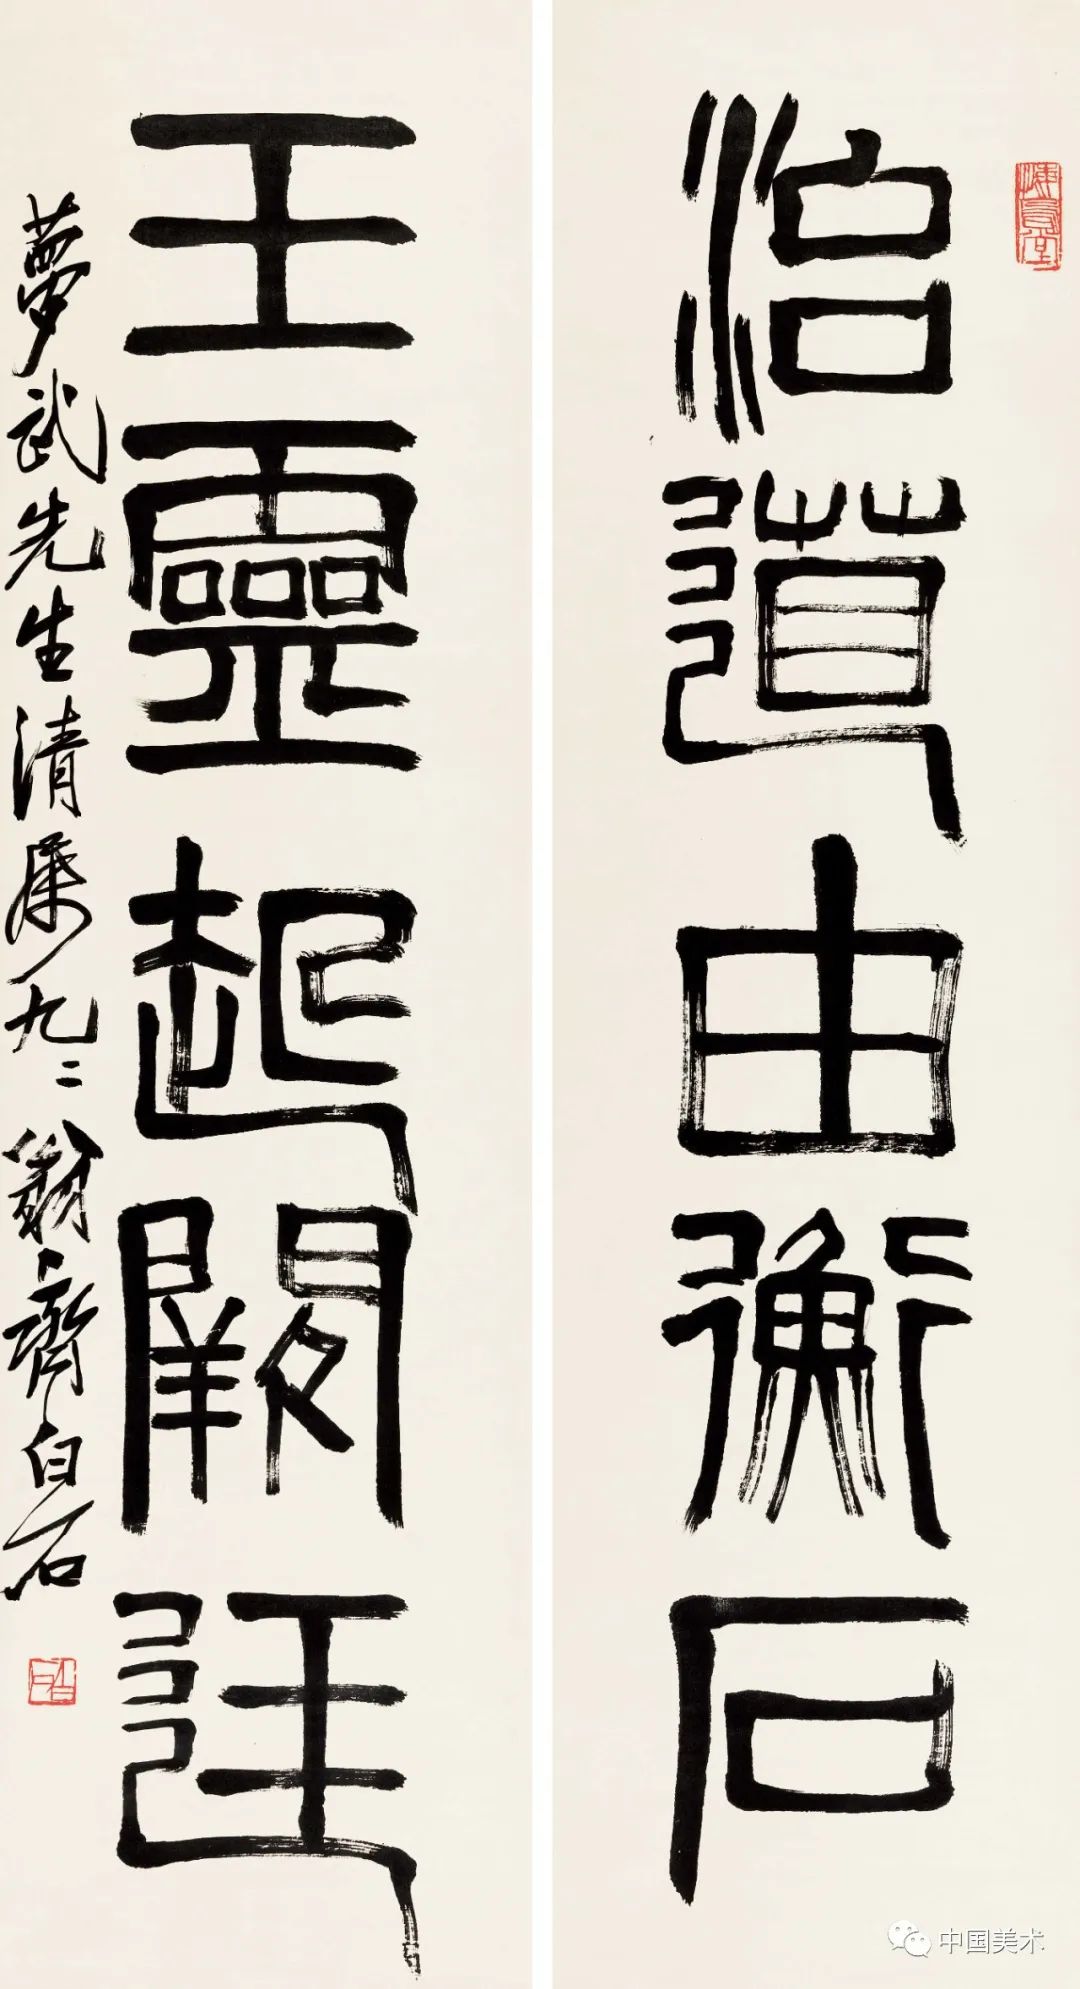 治道由衡石
悔烏堂
王靈起闕廷
夢武先生清屬九二翁齊白石
白石
中国美术